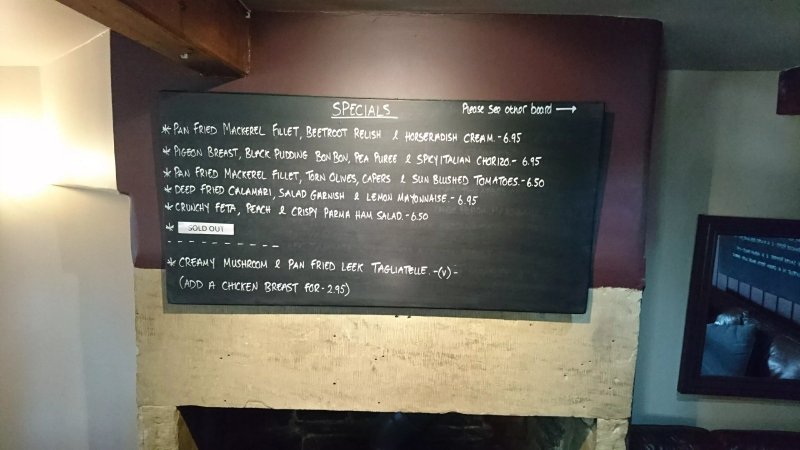 SPECIALS
Please see other board →
* PAN FRIED MACKEREL FILLET, BEETROOT RELISH & HORSERADISH CREAM. - 6.95
* PIGEON BREAST, BLACK PUDDING BON BON, PEA PUREE & SPICY ITALIAN CHORIZO. - 6.95
* PAN FRIED MACKEREL FILLET, TORN OLIVES, CAPERS & SUN BLUSHED TOMATOES. - 6.50
* DEEP FRIED CALAMARI, SALAD GARNISH & LEMON MAYONNAISE. - 6.95
* CRUNCHY FETA, PEACH & CRISPY PARMA HAM SALAD. - 6.50
* SOLD OUT
- - - - - - - - - -
* CREAMY MUSHROOM & PAN FRIED LEEK TAGLIATELLE. -(V)-
(ADD A CHICKEN BREAST FOR - 2.95)